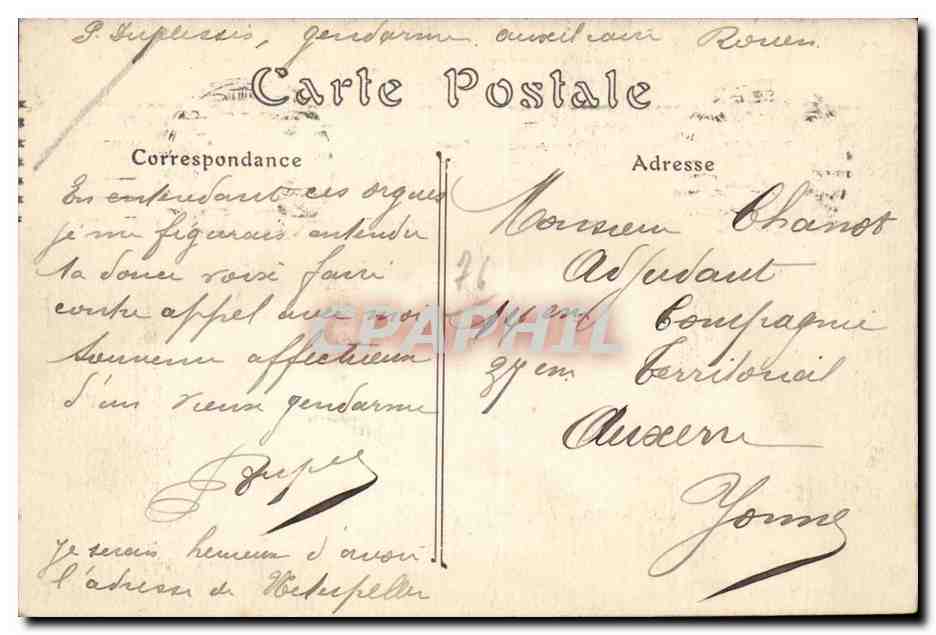 P. Duplessis, gendarme auxiliaire Rouen
Carte Postale
Correspondance
En entendant ces orgues
je me figurais entendre
ta douce voix faire
contre appel avec mon
souvenir affectueux
d'un vieux gendarme
Duples
je serais heureux d'avoir
l'adresse de
Adresse
Monsieur Chanot
Adjudant
76
14em Compagnie
37em Territorial
Auxerre
Yonne
CPAPHIL